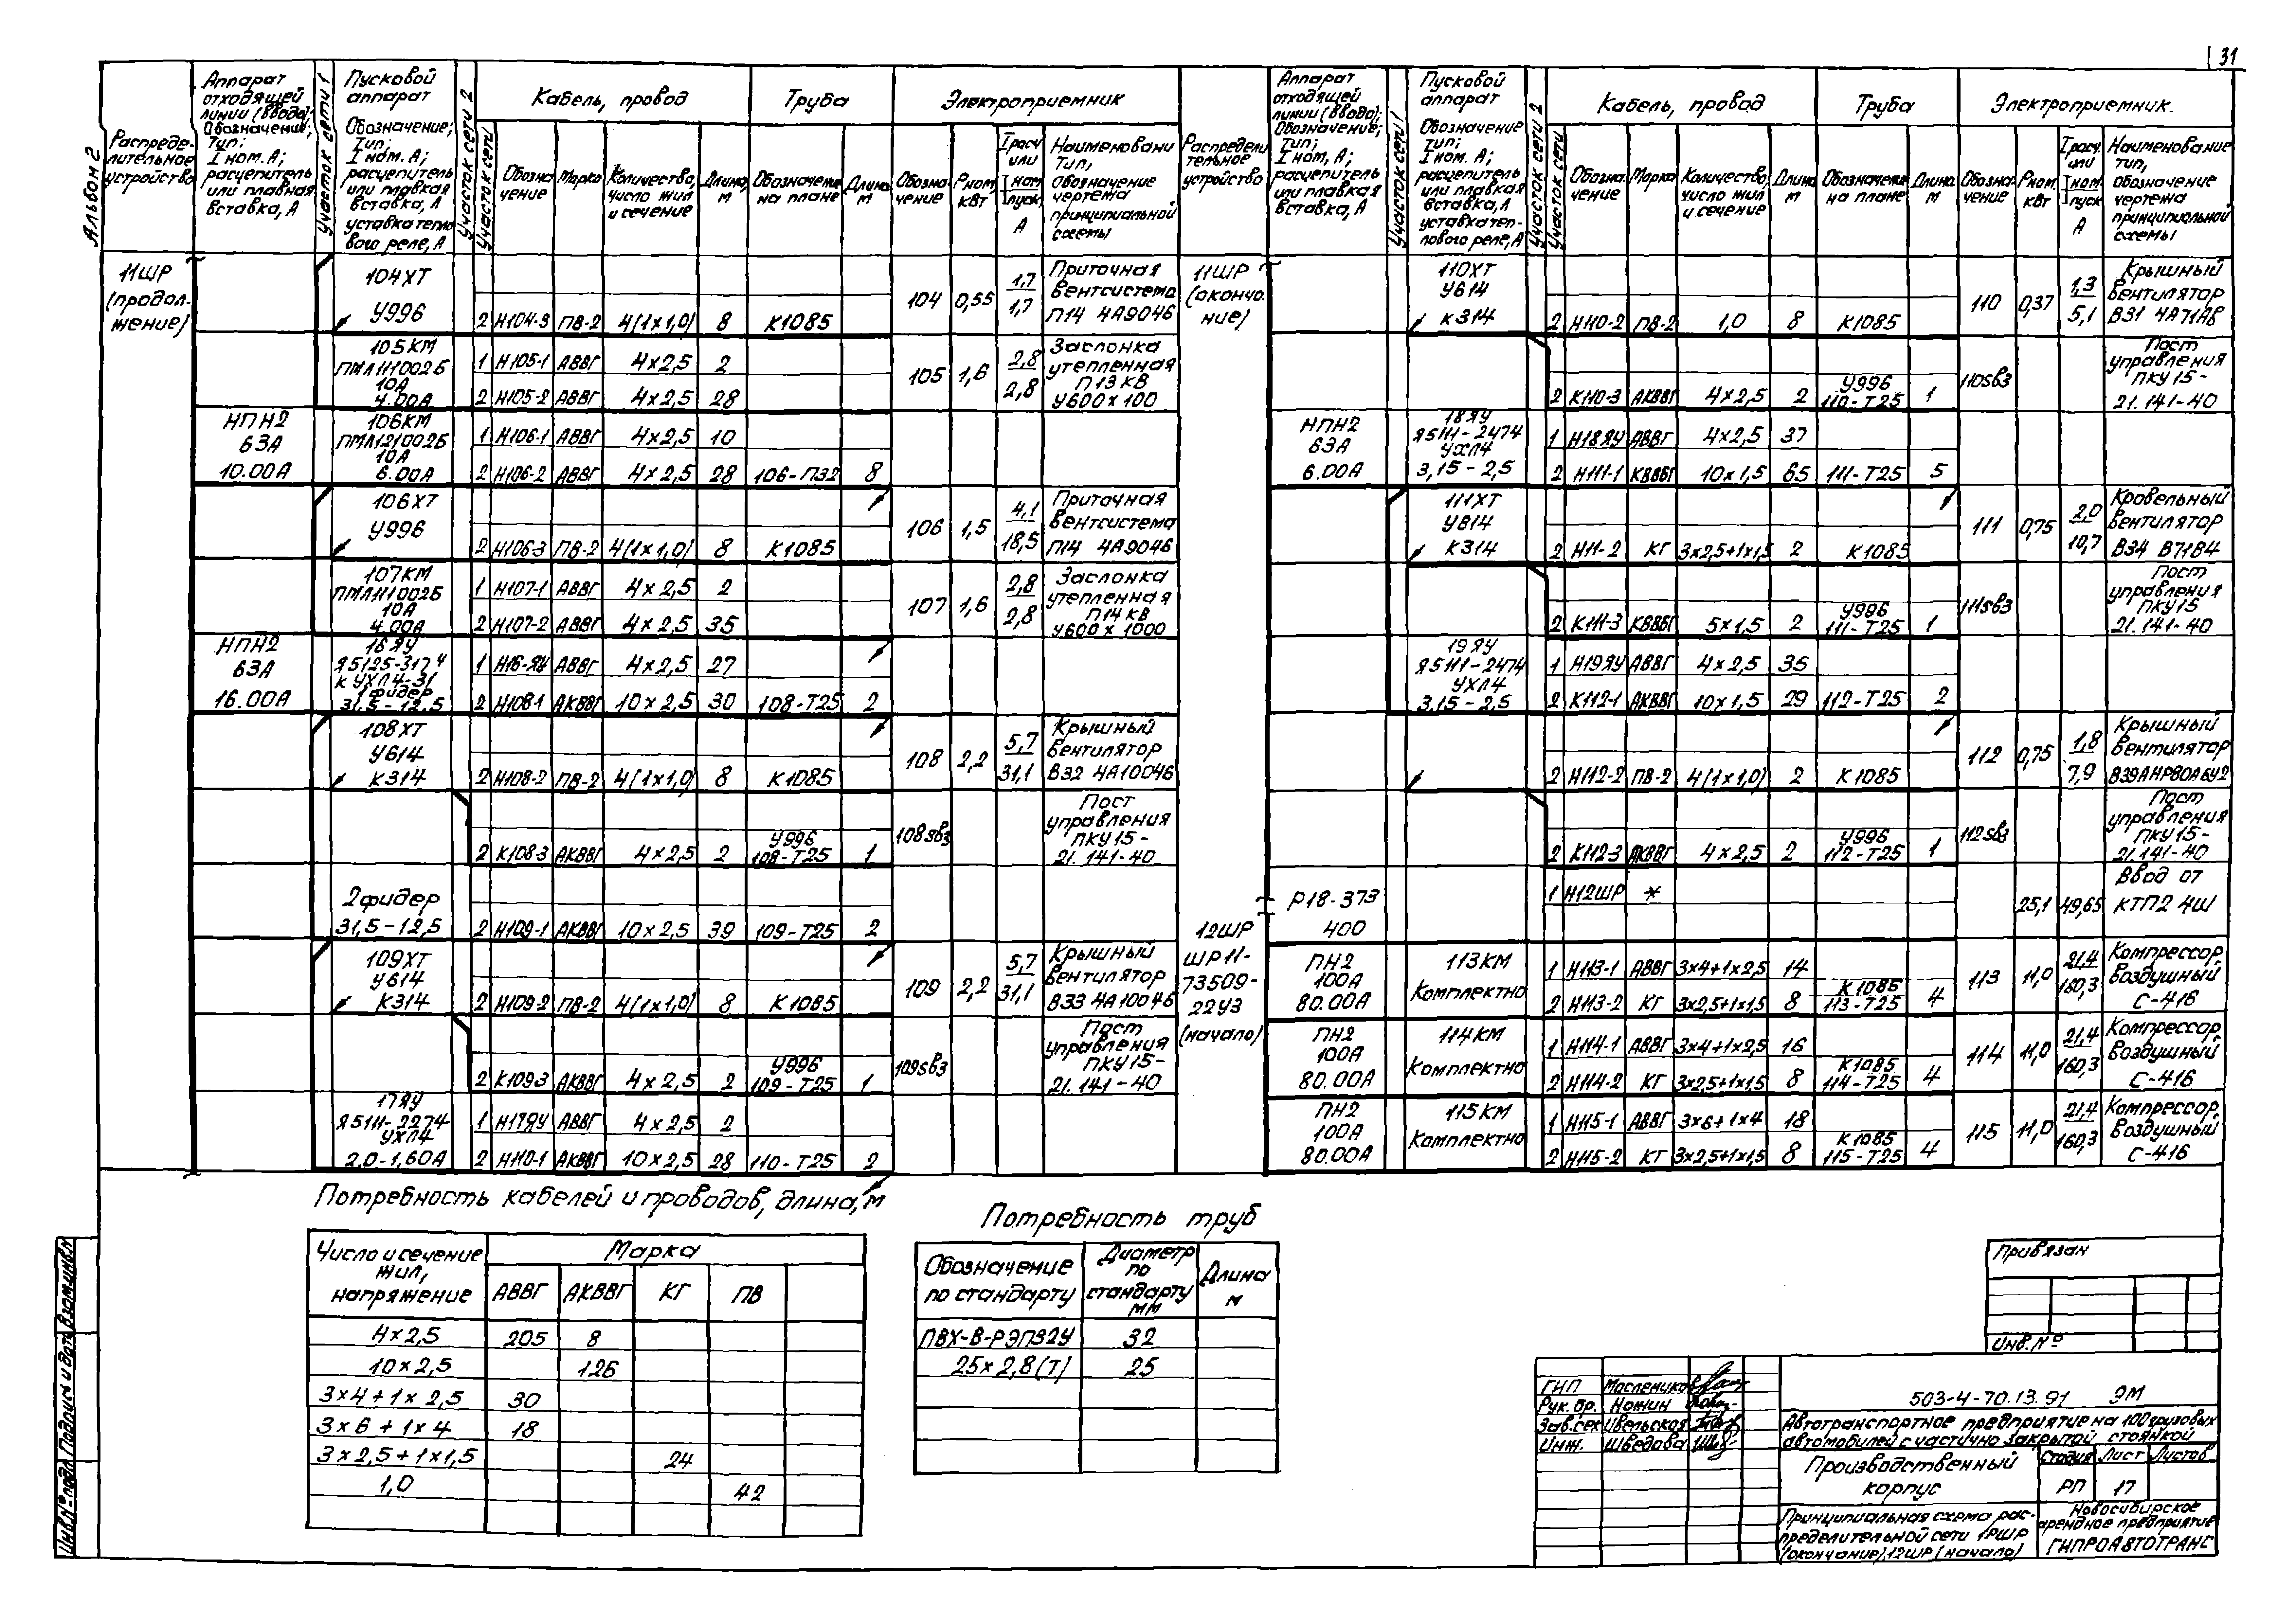 31
Альбом 2
Распреде-
лительное
устройство
Аппарат
отходящей
линии (ввода);
Обозначение;
Тип;
I ном. А;
расцепитель
или плавная
вставка, А
Участок сети 1
Пусковой
аппарат
Обозначение;
Тип;
I ном. А;
расцепитель
или плавкая
вставка, А
уставка тепло
вого реле, А
Участок сети 2
Участок сети
Кабель, провод
Обозна
чение
Марка
Количество,
число жил
и сечение
Длина,
м
Труба
Обозначение
на плане
Длина
м
Электроприемник
Обозна-
чение
Рном,
кВт
I расч
или
I ном
I пуск
А
Наименовани
Тип,
Обозначение
чертежа
принципиальной
схемы
11ШР
(продол-
жение)
104ХТ
У996
2 Н104-3 ПВ-2 4(1х1,0) 8 К1085
104 0,55 1,7 1,7
Приточная
вентсистема
П14 4А9046
105КМ
ПМЛ111002Б
10А
4.00А
1 Н105-1 АВВГ 4×2,5 2
2 Н105-2 АВВГ 4×2,5 28
105 1,6 2,8 2,8
Заслонка
утепленная
П13 КВ
У600×100
НПН2
63А
10.00А
106КМ
ПМЛ121002Б
10А
6.00А
1 Н106-1 АВВГ 4×2,5 10
2 Н106-2 АВВГ 4×2,5 28 106-П32 8
106ХТ
У996
2 Н106-3 ПВ-2 4(1х1,0) 8 К1085
106 1,5 4,1 18,5
Приточная
вентсистема
П14 4А9046
107КМ
ПМЛ111002Б
10А
4.00А
1 Н107-1 АВВГ 4×2,5 2
2 Н107-2 АВВГ 4×2,5 35
107 1,6 2,8 2,8
Заслонка
утепленная
П14 КВ
У600×1000
НПН2
63А
16.00А
16ЯУ
Я5125-3174
К УХЛ4-31
1 фидер
31,5-12,5
1 Н16-ЯУ АВВГ 4×2,5 27
2 Н108-1 АКВВГ 10×2,5 30 108-Т25 2
108ХТ
У614
К314
2 Н108-2 ПВ-2 4(1х1,0) 8 К1085
108 2,2 5,7 31,1
Крышный
вентилятор
В32 4А10046
2 К108-3 АКВВГ 4×2,5 2 У996 108-Т25 1
108sв3
Пост
управления
ПКУ15-
21.141-40
2 фидер
31,5-12,5
2 Н109-1 АКВВГ 10×2,5 39 109-Т25 2
109ХТ
У614
К314
2 Н109-2 ПВ-2 4(1х1,0) 8 К1085
109 2,2 5,7 31,1
Крышный
вентилятор
В33 4А10046
2 К109-3 АКВВГ 4×2,5 2 У996 109-Т25 1
109sв3
Пост
управления
ПКУ15-
21.141-40
17ЯУ
Я5111-2274
УХЛ4
2,0-1,60А
1 Н17ЯУ АВВГ 4×2,5 2
2 Н110-1 АКВВГ 10×2,5 28 110-Т25 2
Распредели
тельное
устройство
Аппарат
отходящей
линии (ввода);
Обозначение;
Тип;
I ном, А;
расцепитель
или плавкая
вставка, А
Участок сети 1
Пусковой
аппарат
Обозначение
Тип;
I ном. А;
расцепитель
или плавкая
вставка, А
уставка теп-
лового реле, А
Участок сети 2
Участок сети
Кабель, провод
Обозна-
чение
Марка
Количество,
число жил
и сечение
Длина
м
Труба
Обозначение
на плане
Длина
м
Электроприемник.
Обозна-
чение
Рном.
кВт
I расч.
или
I ном.
I пуск
А
Наименование
тип,
обозначение
чертежа
принципиальной
схемы
11ШР
(оконча-
ние)
110ХТ
У614
К314
2 Н110-2 ПВ-2 1,0 8 К1085
110 0,37 1,3 5,1
Крышный
вентилятор
В31 4А71А8
2 К110-3 АКВВГ 4×2,5 2 У996 110-Т25 1
110sв3
Пост
управления
ПКУ15-
21.141-40
НПН2
63А
6.00А
18ЯУ
Я5111-2474
УХЛ4
3,15-2,5
1 Н18ЯУ АВВГ 4×2,5 37
2 Н111-1 КВВБГ 10×1,5 65 111-Т25 5
111ХТ
У814
К314
2 Н11-2 КГ 3×2,5+1×1,5 2 К1085
111 0,75 2,0 10,7
Кровельный
вентилятор
В34 В71В4
2 К111-3 КВВБГ 5×1,5 2 У996 111-Т25 1
111sв3
Пост
управления
ПКУ15
21.141-40
19ЯУ
Я5111-2474
УХЛ4
3,15-2,5
1 Н19ЯУ АВВГ 4×2,5 35
2 К112-1 АКВВГ 10×1,5 29 112-Т25 2
2 Н112-2 ПВ-2 4(1х1,0) 2 К1085
112 0,75 1,8 7,9
Крышный
вентилятор
В39АНР80А6У2
2 К112-3 АКВВГ 4×2,5 2 У996 112-Т25 1
112sв3
Пост
управления
ПКУ15-
21.141-40
12ШР
ШР11-
73509-
22У3
(начало)
Р18-373
400
1 Н12ШР *
25,1 49,65
Ввод от
КТП2 4Ш
ПН2
100А
80.00А
113КМ
Комплектно
1 Н113-1 АВВГ 3×4+1×2,5 14
2 Н113-2 КГ 3×2,5+1×1,5 8 К1085 113-Т25 4
113 11,0 21,4 160,3
Компрессор
воздушный
С-416
ПН2
100А
80.00А
114КМ
Комплектно
1 Н114-1 АВВГ 3×4+1×2,5 16
2 Н114-2 КГ 3×2,5+1×1,5 8 К1085 114-Т25 4
114 11,0 21,4 160,3
Компрессор
воздушный
С-416
ПН2
100А
80.00А
115КМ
Комплектно
1 Н115-1 АВВГ 3×6+1×4 18
2 Н115-2 КГ 3×2,5+1×1,5 8 К1085 115-Т25 4
115 11,0 21,4 160,3
Компрессор
воздушный
С-416
Потребность кабелей и проводов, длина, м
Число и сечение
жил,
напряжение
Марка
АВВГ АКВВГ КГ ПВ
4×2,5 205 8
10×2,5 126
3×4+1×2,5 30
3×6+1×4 18
3×2,5+1×1,5 24
1,0 42
Потребность труб
Обозначение
по стандарту
Диаметр
по
стандарту
мм
Длина
м
ПВХ-В-РЭП32У 32
25×2,8(Т) 25
Привязан
Инв. №
ГИП Маслеников
Рук. бр. Ножин
Зав. сек Ивельская
Инж. Шведова
503-4-70.13.91 ЭМ
Автотранспортное предприятие на 100 грузовых
автомобилей с частично закрытой стоянкой
Производственный
корпус
Стадия Лист Листов
РП 17
Принципиальная схема рас-
пределительной сети 1РШР
(окончание), 12ШР (начало)
Новосибирское
арендное предприятие
ГИПРОАВТОТРАНС
Инв. № подл. Подпись и дата Взам. инв. №